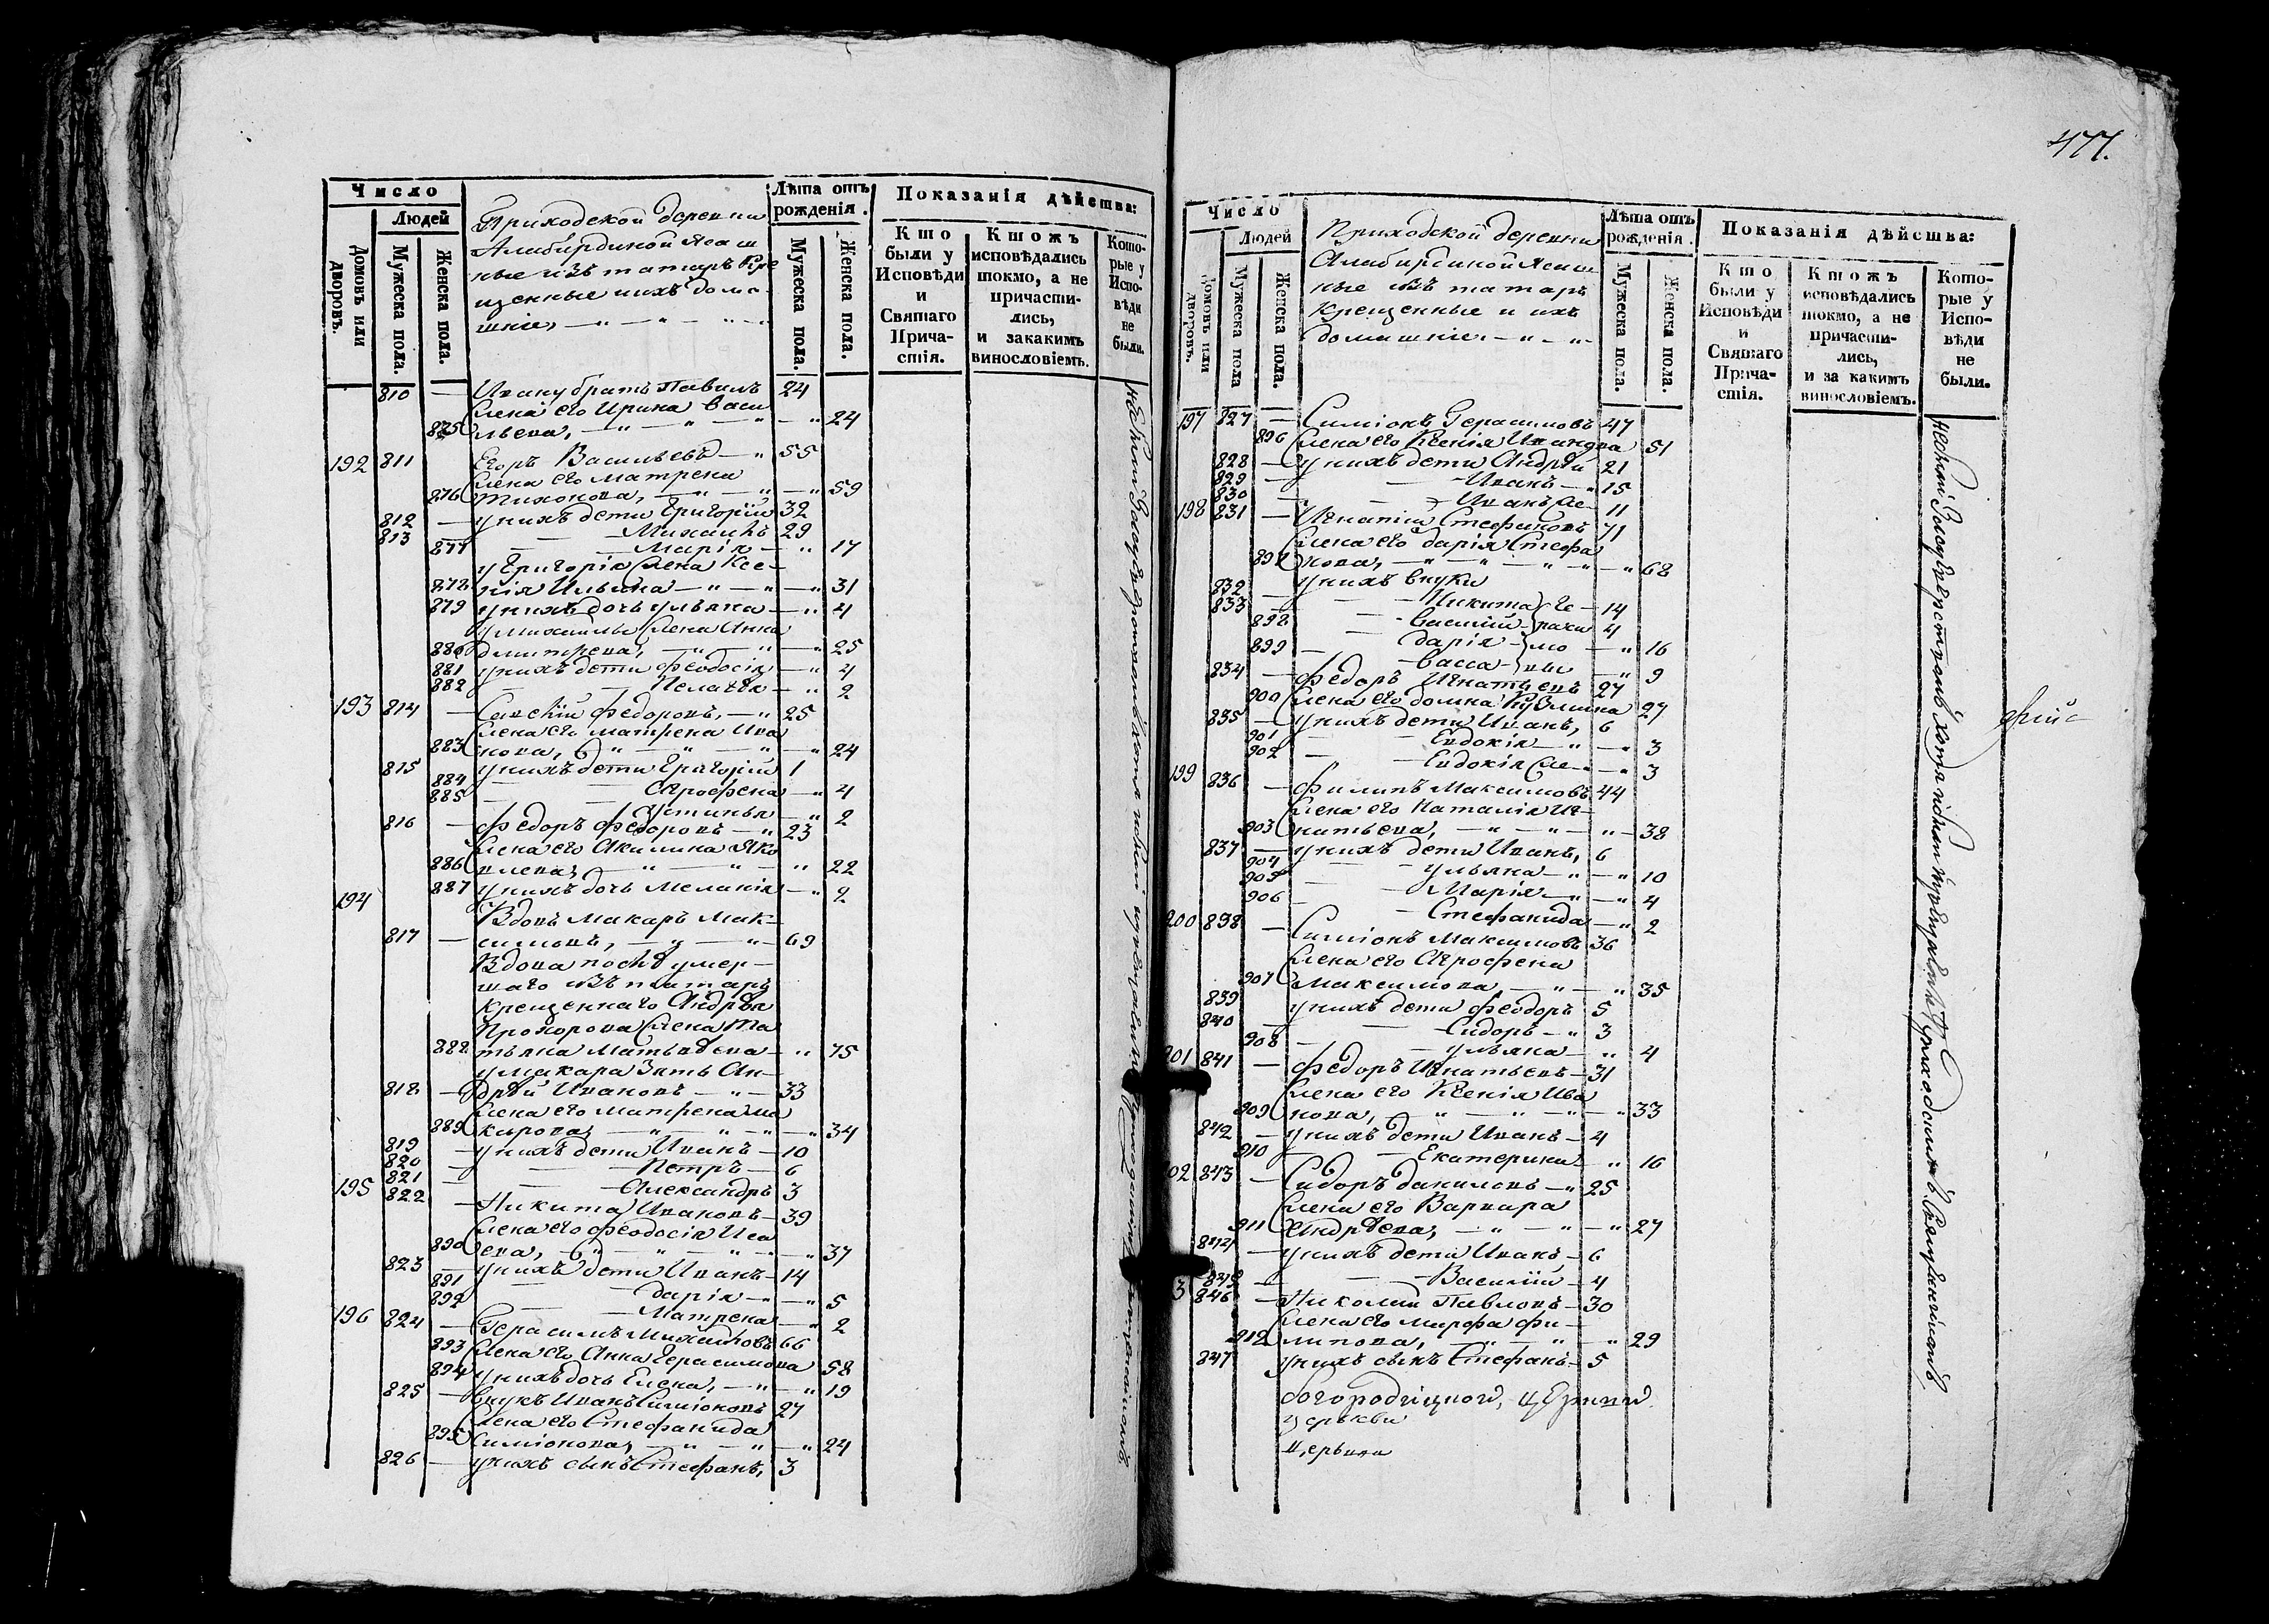 477.
Число
Людей
Домовъ или дворовъ.
Мужеска пола.
Женска пола.
Приходской деревни
Алибирдиной Ясаш
ные изъ татаръ Кре
щенные и ихъ дома-
шніе,
Лѣта отъ рожденія.
Мужеска пола.
Женска пола.
Показанія дѣйства:
Кто были у Исповѣди и Святаго Прича-стія.
Ктожъ исповѣдались токмо, а не причасти-лись, и закакимъ винословіемъ.
Кото-рые у Испо-вѣди не были.
810 — Ивану братъ Павилъ 24
жена его Ирина Васи
875 льева, — " 24
192 811 Егоръ Васильевъ — " 55
жена его Матрена
876 Тихонова, — " 59
812 — у нихъ дети Григорій 32
813 — Михаилъ 29
877 — Марія — " 17
у Григорія жена Ксе-
878 нія Ильина — " 31
879 у нихъ дочь Ульяна — " 4
у Михаилы жена Анна
880 Дмитрева, — " 25
881 у нихъ дети Феодосія — " 4
882 — Пелагея — " 2
193 814 — Савелій Федоровъ, — " 25
жена его Матрена Ива
883 нова, — " 24
815 у нихъ дети Григорій 1
884 — Агрофена — " 4
885 — Устинья — " 2
816 — Федоръ Федоровъ — " 23
жена его Акилина Яко
886 влева, — " 22
887 у нихъ дочь Меланія — " 2
194
Вдовъ Макаръ Мак-
817 — симовъ, — " 69
Вдова послѣ умер-
шаго изъ татаръ
крещеннаго Андрѣя
Прохорова жена Та
888 тьяна Матвѣева — " 75
у Макара Зять Ан-
818 — дрѣй Ивановъ — " 33
жена его Матрена Ма
889 карова, — " 34
819 — у нихъ дети Иванъ — 10
820 — Петръ — 6
821 — Александръ 3
195 822 — Никита Ивановъ — 39
жена его Феодосія Иса
890 ева, — " 37
823 — у нихъ дети Иванъ — 14
891 — Дарія — " 5
892 — Матрена — " 2
196 824 — Герасимъ Михайловъ 66
893 жена его Анна Герасимова 58
894 у нихъ дочь Елена, — " 19
825 — внукъ Иванъ Симіоновъ 27
жена его Стефанида
895 Симіонова, — " 24
826 — у нихъ сынъ Стефанъ, 3
Число
Людей
Домовъ или дворовъ.
Мужеска пола
Женска пола.
Приходской деревни
Алибирдиной Ясаш
ные изъ татаръ
Крещенные и ихъ
домашніе — " — "
Лѣта отъ рожденія.
Мужеска пола.
Женска пола.
Показанія дѣйства:
Кто были у Исповѣди и Святаго Прича-стія.
Ктожъ исповѣдались токмо, а не причасти-лись, и за какимъ винословіемъ.
Кото-рые у Испо-вѣди не были.
197 827 — Симіонъ Герасимовъ 47
896 жена его Ксенія Иванова 51
828 — у нихъ дети Андрѣй 21
829 — Иванъ — " 15
830 — Иванъ же — 11
198 831 — Игнатій Стефановъ 71
жена его Дарія Стефа
897 нова, — " 68
у нихъ внуки
832 — Никита 14
833 — Василій 4
898 — Дарія — " 16
899 — Васса — " 9
834 — Федоръ Игнатьевъ 27
900 жена его Домна Кузмина 27
835 — у нихъ дети Иванъ, 6
901 — Евдокія — " 3
902 — Евдокія же — " 3
199 836 — Филипъ Максимовъ 44
жена его Наталія Иг-
903 натьева, — " 38
837 — у нихъ дети Иванъ, 6
904 — Ульяна — " 10
905 — Марія — " 4
906 — Стефанида — " 2
200 838 — Симіонъ Максимовъ 36
жена его Агрофена
907 Максимова, — " 35
839 у нихъ дети Феодоръ 5
840 — Сидоръ — " 3
908 — Ульяна — " 4
201 841 — Федоръ Игнатьевъ — 31
жена его Ксенія Ива
909 нова, — " 33
842 — у нихъ дети Иванъ — 4
910 — Екатерина — " 16
02 843 — Сидоръ Даниловъ — " 25
жена его Варвара
911 Андрѣева, — " 27
844 — у нихъ дети Иванъ — 6
845 — Василій — 4
3 846 — Николай Павловъ — 30
жена его Марфа Фи-
912 липова, — " 29
847 у нихъ сынъ Стефанъ — 5
Богородицкой,
церкви